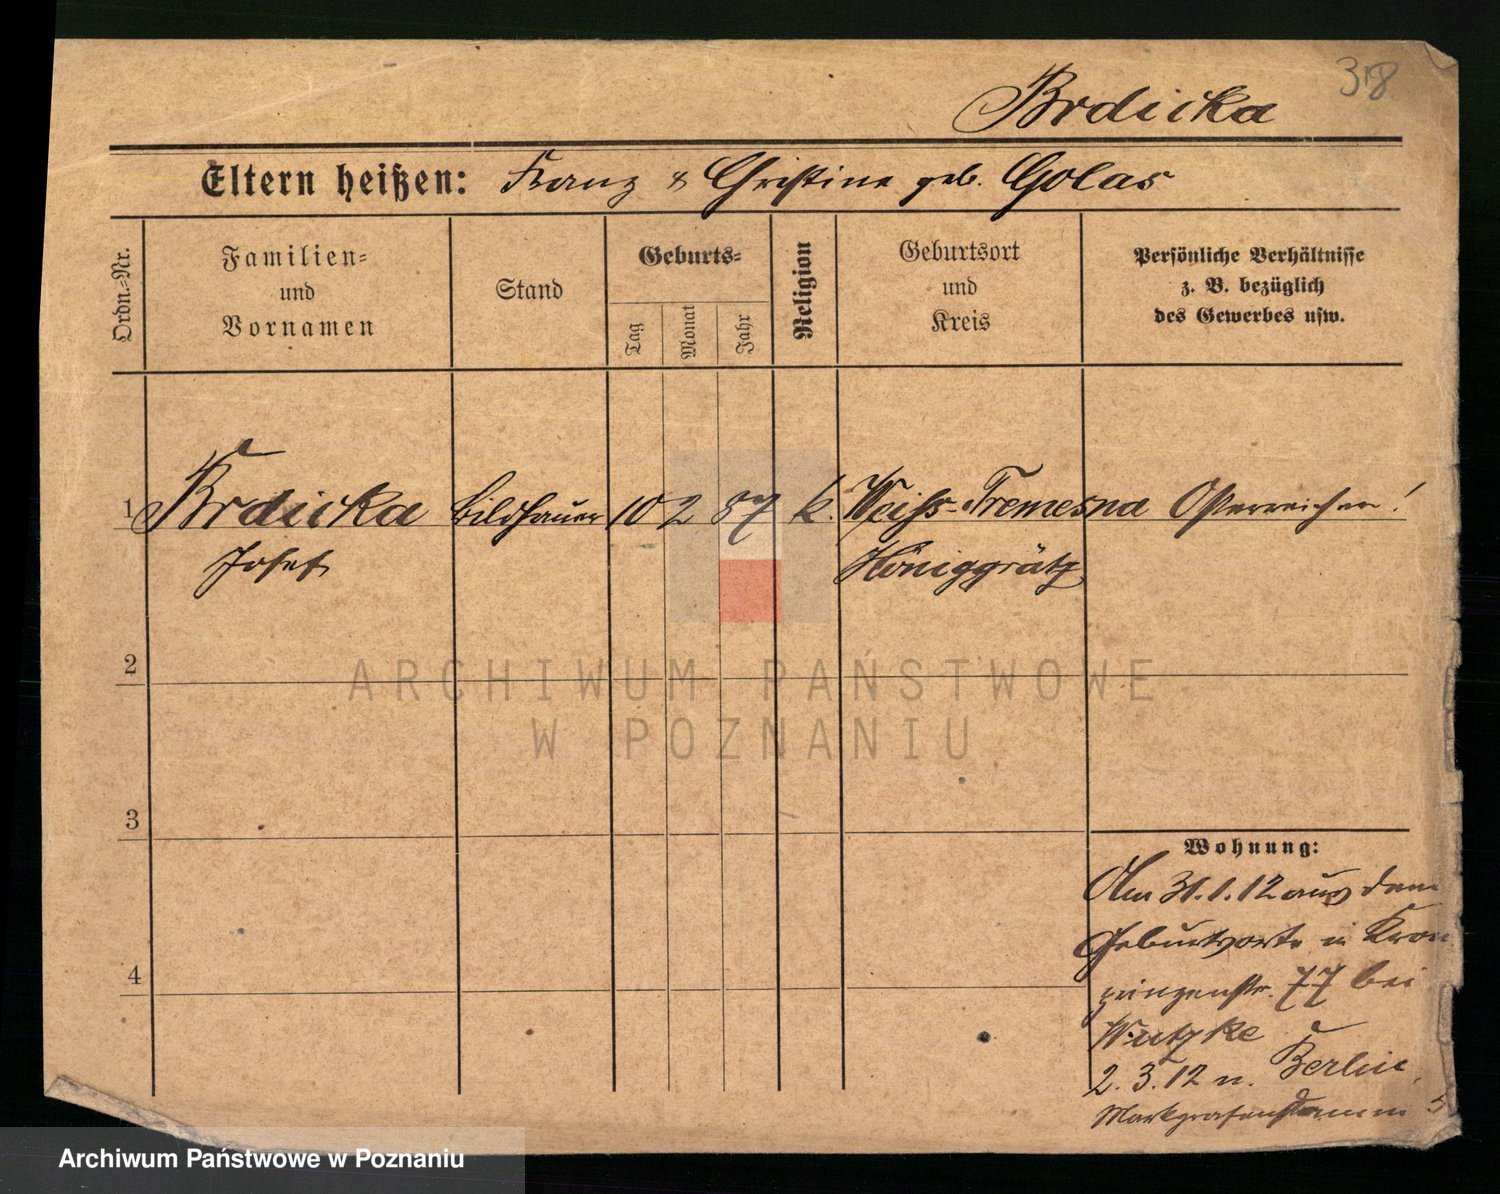 318
Brdicka
Eltern heißen: Franz & Christine geb. Golas
Ordn.=Nr.
Familien=
und
Vornamen
Stand
Geburts=
Tag
Monat
Jahr
Religion
Geburtsort
und
Kreis
Persönliche Verhältnisse
z. B. bezüglich
des Gewerbes usw.
1 Brdicka Bildhauer 10 2 87 k. Weiss-Tremesna Österreicher!
Josef Königgrätz
2
3
4
Wohnung:
Am 31.1.12 aus dem
Geburtsorte in Kron
prinzenstr. 77 bei
Wutzke
2.3.12 n. Berlin,
Markgrafendamm 5
ARCHIWUM PAŃSTWOWE
W POZNANIU
Archiwum Państwowe w Poznaniu